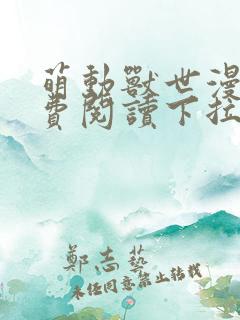 萌動獸世漫
費閱讀下拉
鄭志藝
未經同意禁止轉載